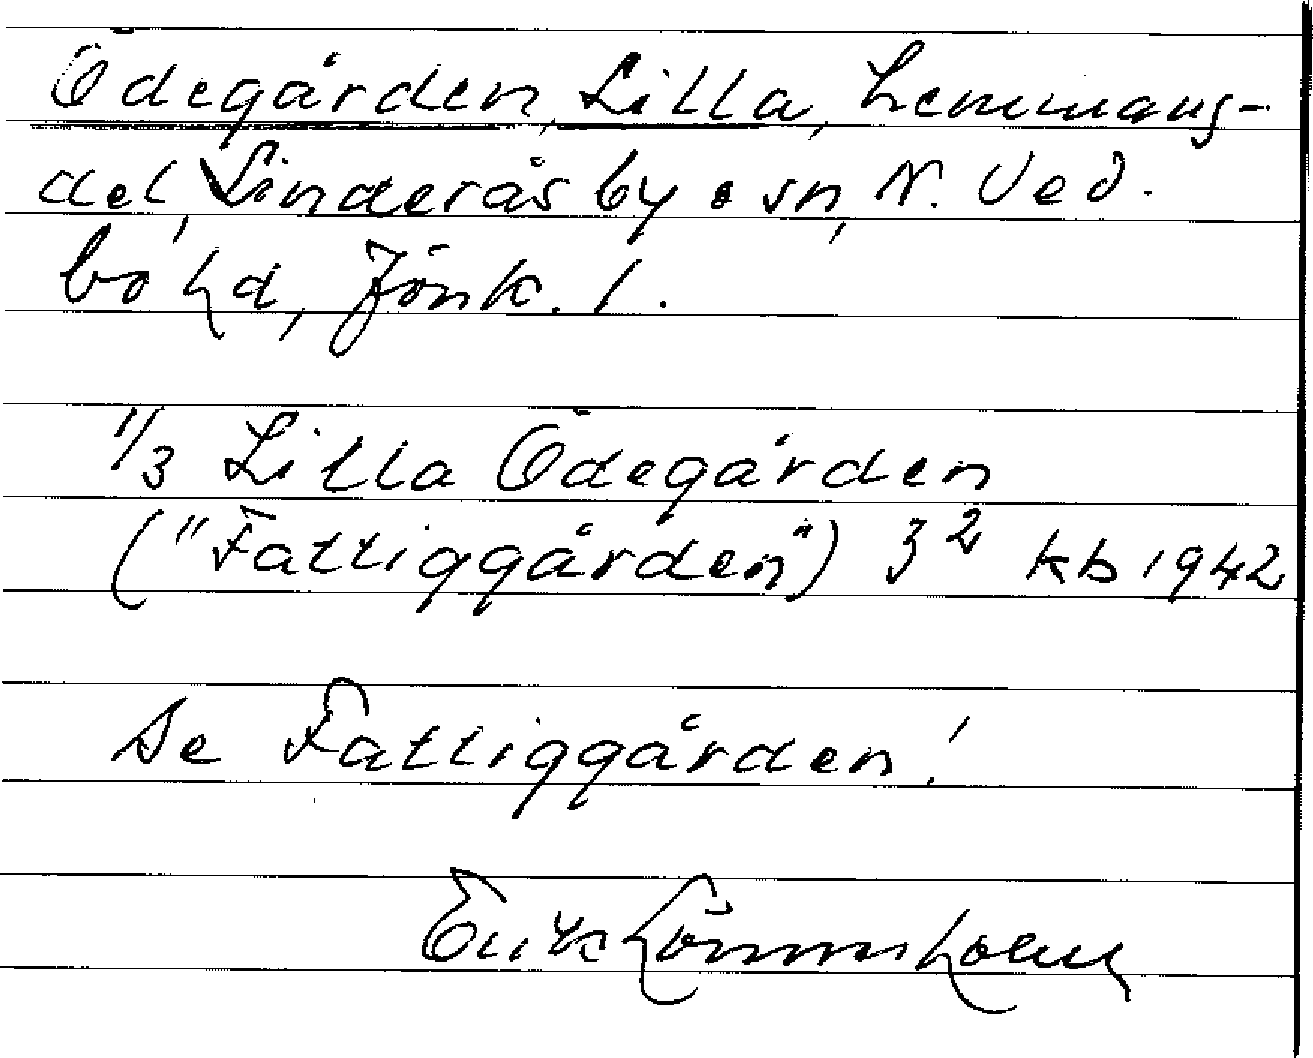 Ödegården, Lilla, hemmans-
del, Linderås by o sn, N. Ved.
bo hd, Jönk. l.
1/3 Lilla Ödegården
("Fattiggården") 3² kb 1942
Se Fattiggården!
Erik Lönnerholm